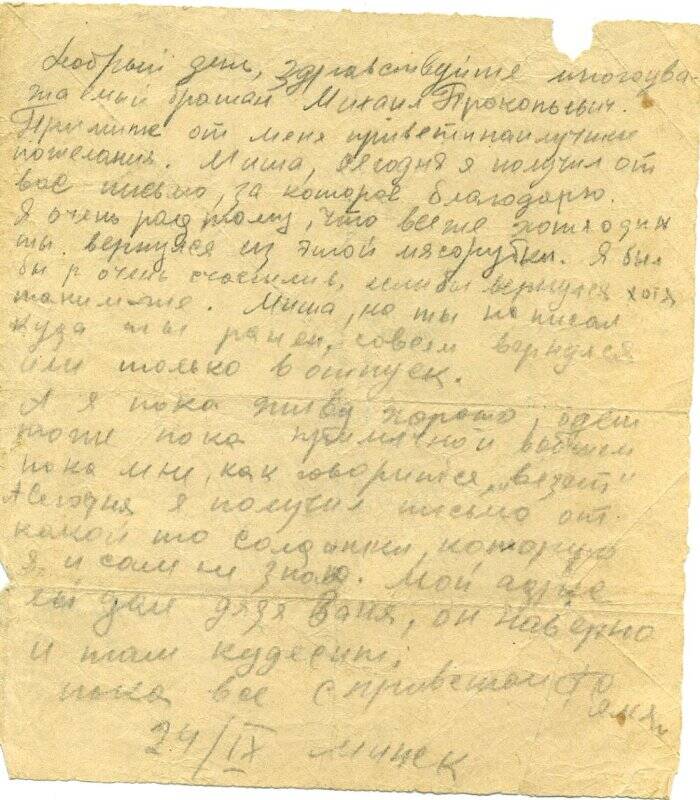 Добрый день, здравствуйте многоува-
жаемый братан Михаил Прокопьевич.
Примите от меня привет и наилучшие
пожелания. Миша, сегодня я получил от
вас письмо, за которое благодарю.
Я очень рад тому, что все же хотя один
ты вернулся из этой мясорубки. Я был
бы очень счастлив, если бы вернулся хотя
таким же. Миша, но ты не писал
куда ты ранен, совсем вернулся
или только в отпуск.
А я пока живу хорошо,
тоже пока приличной вобщем
пока мне, как говорится, „везет"
А Сегодня я получил письмо от
какой то солдатки, которую
я и сам не знаю. Мой адрес
ей дал дядя Ваня, он наверно
и там кудесит,
пока все с приветом
24/IX Минск